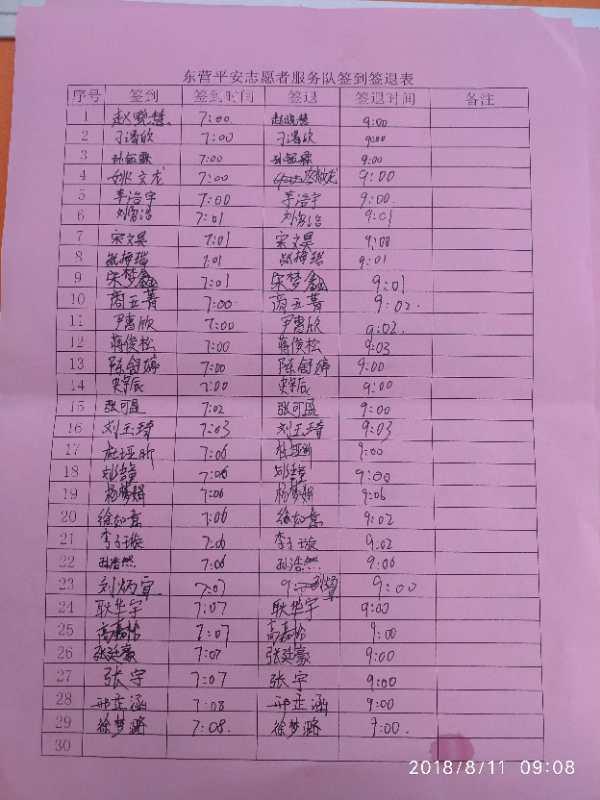 东营平安志愿者服务队签到签退表
序号 签到 签到时间 签退 签退时间 备注
1 赵晓慧 7:00 赵晓慧 9:00
2 7:00 9:00
3 7:00 9:00
4 姚文龙 7:00 9:00
5 李浩宇 7:00 李浩宇 9:00
6 7:01 9:01
7 宋文昊 7:01 宋文昊 9:00
8 7:01 9:01
9 宋梦鑫 7:01 宋梦鑫 9:01
10 商玉菁 7:00 商玉菁 9:02.
11 尹惠欣 7:00 尹惠欣 9:02.
12 蒋俊松 7:00 蒋俊松 9:03
13 陈舒婷 7:00 陈舒婷 9:00
14 7:00 9:00
15 张可盈 7:02 张可盈 9:00
16 刘玉琦 7:03 刘玉琦 9:03
17 7:06 9:00
18 7:06 9:00
19 7:06 9:06
20 徐如意 7:06 徐如意 9:02
21 李子璇 7:06 李子璇 9:02
22 孙浩然 7:06 孙浩然 9:06
23 刘炳宜 7:07 9:00
24 耿华宇 7:07 耿华宇 9:00
25 高嘉怡 7:07 高嘉怡 9:00
26 张廷豪 7:07 张廷豪 9:00
27 张宇 7:07 张宇 9:00
28 邢芷涵 7:08 邢芷涵 9:00
29 徐梦璐 7:08. 徐梦璐 9:00.
30
2018/8/11 09:08